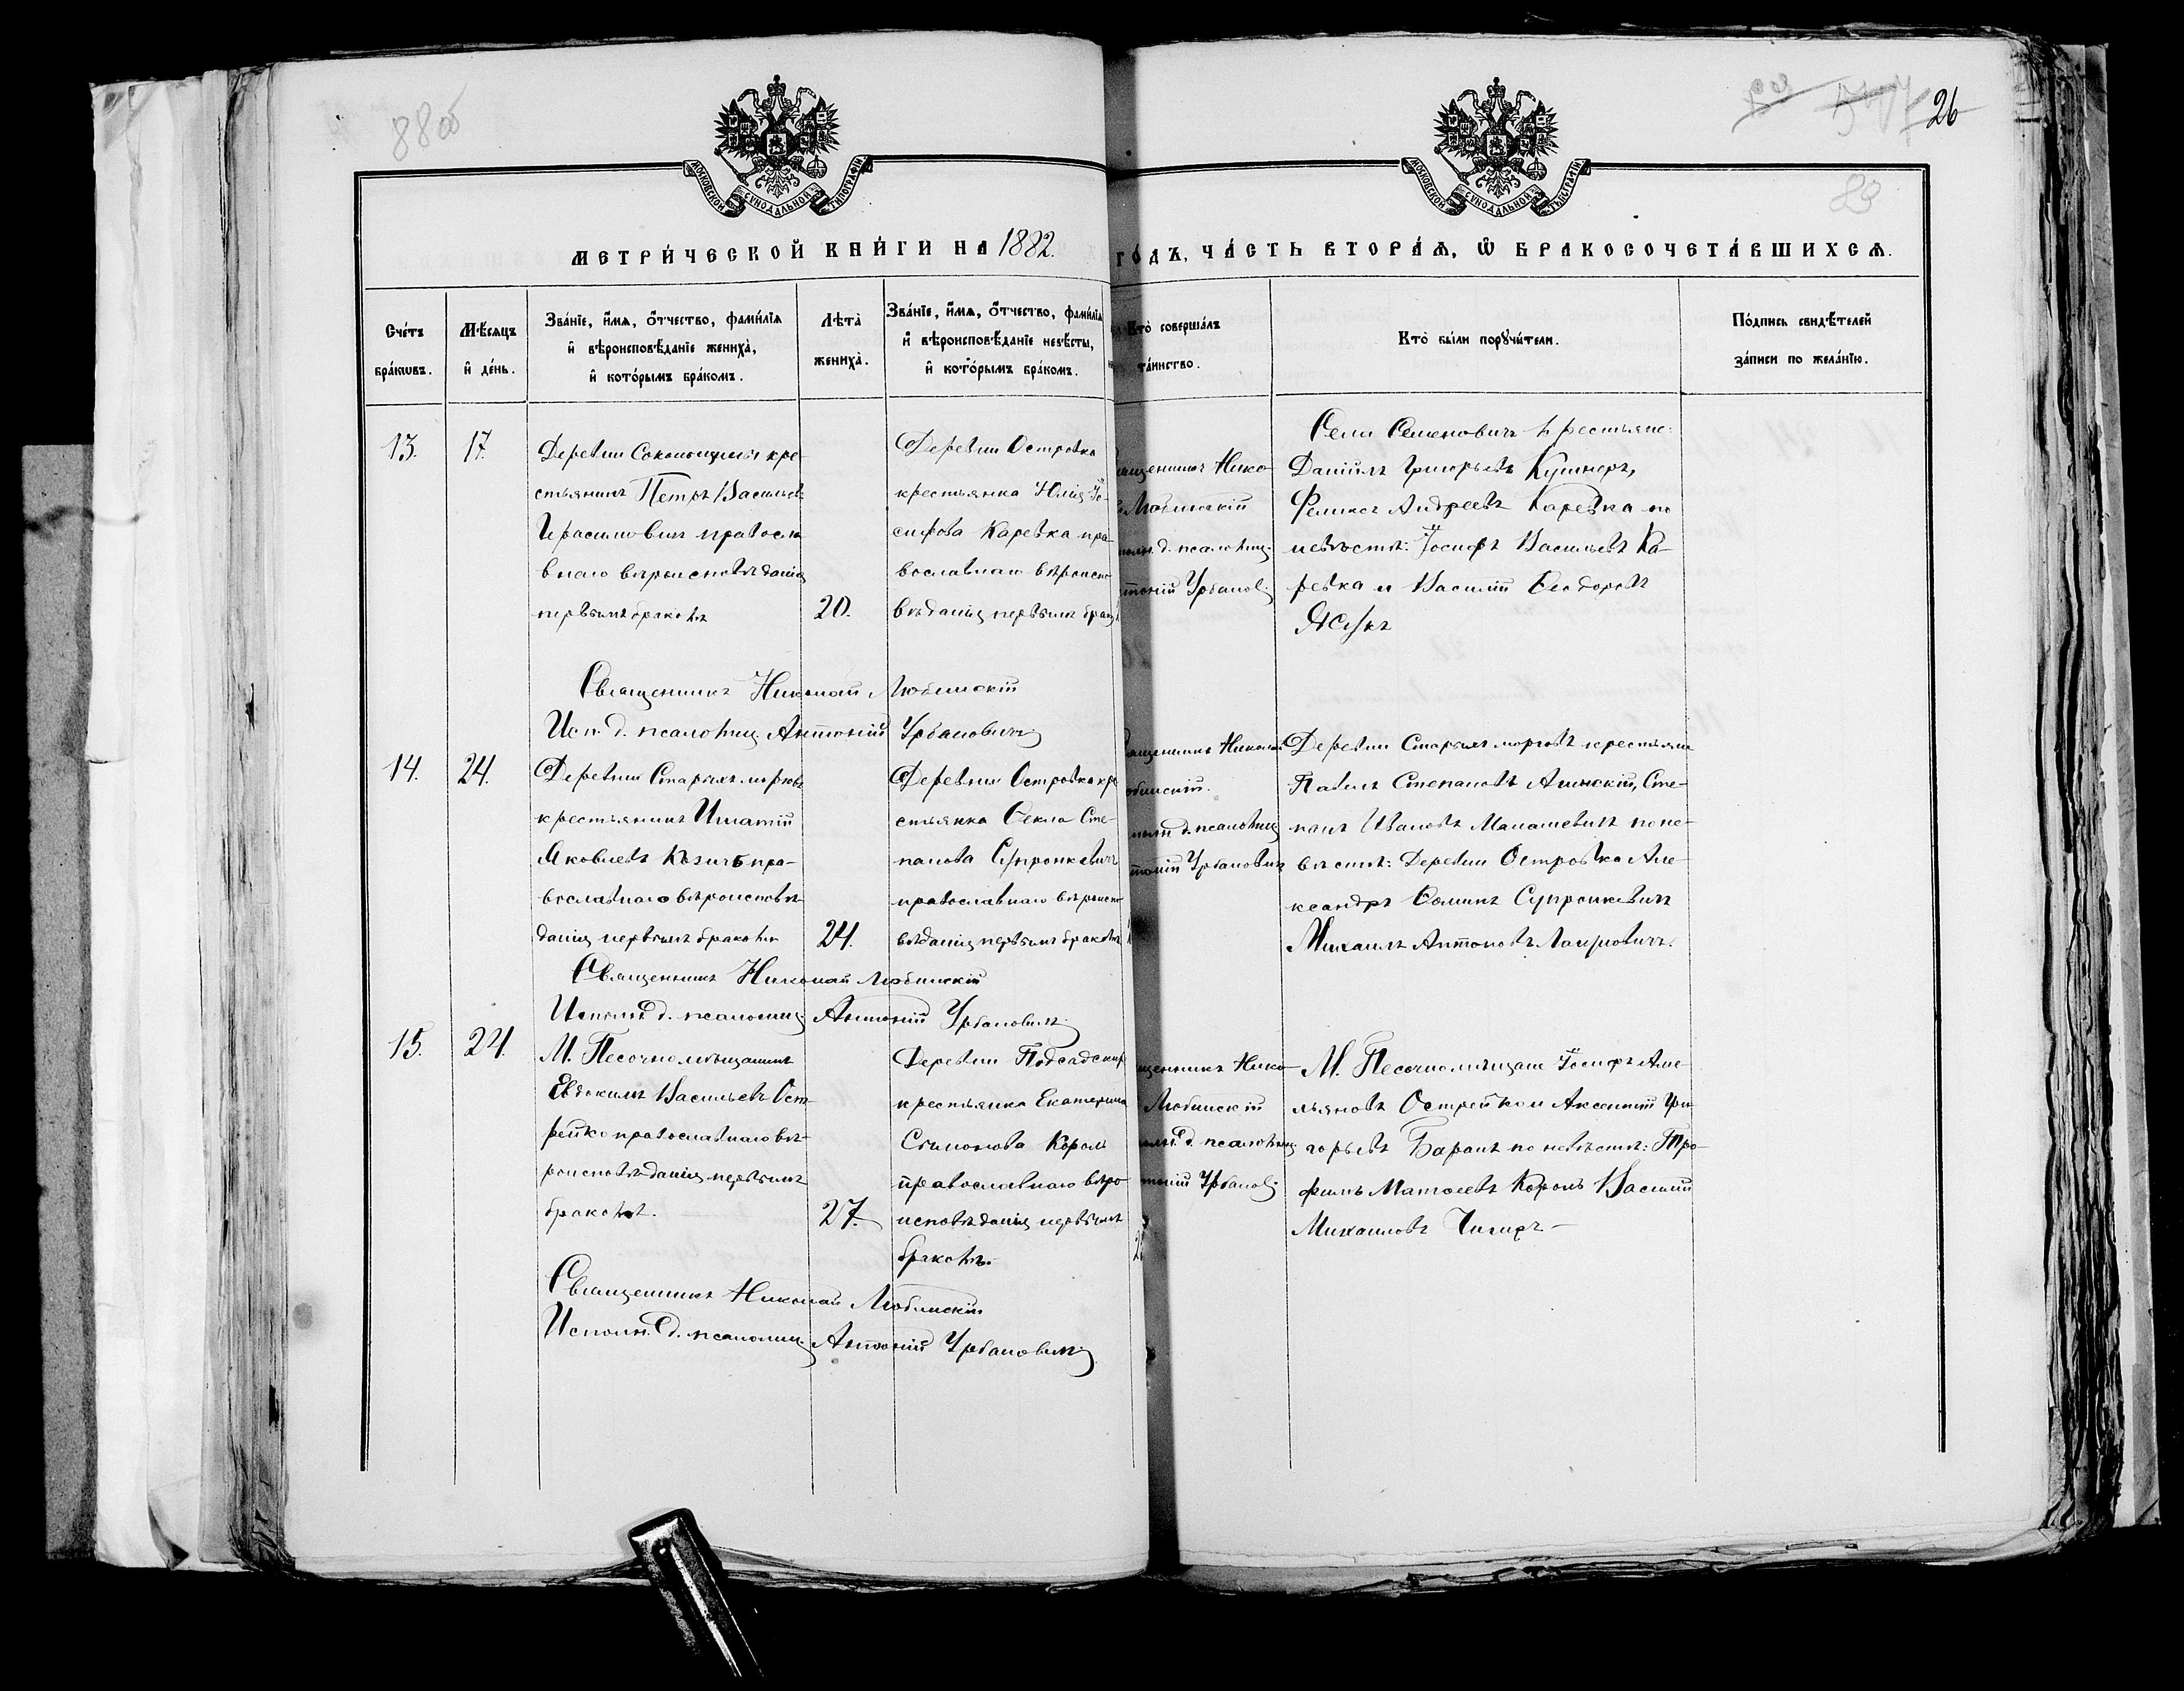 88об
26
23
МОСКОВСКОЙ СѴНОДАЛЬНОЙ ТИПОГРАФІИ
МОСКОВСКОЙ СѴНОДАЛЬНОЙ ТИПОГРАФІИ
МЕТРИ́ЧЕСКОЙ КНИ́ГИ НА 1882. ГО́ДЪ, ЧА́СТЬ ВТОРА́Ѧ, Ѽ БРАКОСОЧЕТА́ВШИХСѦ.
Сче́тъ
бра́кѡвъ.
Мѣ́сѧцъ
и҆ де́нь.
Зва́нїе, и҆́мѧ, ѻ҆́тчество, фами́лїѧ
и҆ вѣроисповѣ́данїе жениха̀,
и҆ кото́рымъ бра́комъ.
Лѣта̀
жениха̀.
Зва́нїе, и҆́мѧ, ѻ҆́тчество, фами́лїѧ
и҆ вѣроисповѣ́данїе невѣ́сты,
и҆ кото́рымъ бра́комъ.
Кто̀ соверша́лъ
та́инство.
Кто̀ бы́ли порꙋчи́тели.
По́дпись свидѣ́телей
за́писи по жела́нїю.
13.
17.
Деревни кре-
стьянинъ Петръ Васильевъ
Герасимовичъ правосла-
внаго вѣроисповѣданія
первымъ бракомъ
20.
Деревни Островка
крестьянка Юлія Іо-
сифова Каревка пра-
вославнаго вѣроиспо-
вѣданія первымъ брак
ященникъ Нико
Любинскій
д. псаломщ.
тоній Урбанов.
Сели Семеновичъ крестьяне:
Даніилъ Григорьевъ Кушнеръ,
Феликсъ Андреевъ Каревка по
невѣстѣ: Іосифъ Васильевъ Ка-
ревка и Василій Ѳеодоровъ
Ясюкъ
Священникъ Николай Любинскій
Исп. д. псаломщ. Антоній Урбановичъ
14.
24.
Деревни Старыхъ морговъ
крестьянинъ Игнатій
Яковлевъ Козичъ пра-
вославнаго вѣроисповѣ-
данія первымъ бракомъ
24.
Деревни Островка кре
стьянка Ѳекла Сте-
панова Супронкевичъ
православнаго вѣроиспо-
вѣданія первымъ бракомъ
ященникъ Николай
юбинскій.
д. псаломщ
тоній Урбановичъ
Деревни Старыхъ морговъ крестьяне
Павелъ Степановъ Алинскій, Сте-
панъ Ивановъ Малашевичъ по не-
вѣстѣ: Деревни Островка Але-
ксандръ Ѳоминъ Супронкевичъ
Михаилъ Антоновъ
Священникъ Николай Любинскій
Исполн. д. псаломщ. Антоній Урбановичъ
15.
24.
М. Песочно мѣщанинъ
Евдокимъ Васильевъ Ост-
рейко православнаго вѣ-
роисповѣданія первымъ
бракомъ.
27.
Деревни
крестьянка Екатерина
Симонова Король
православнаго вѣро-
исповѣданія первымъ
бракомъ.
щенникъ Нико-
Любинскій
д. псаломщ.
тоній Урбанов.
М. Песочно мѣщане Іосифъ Аме-
льяновъ Острейко и Аксентій Гри-
горьевъ Баранъ по невѣстѣ: Тро-
фимъ Матѳеевъ Король Василій
Михаиловъ Чигиръ
Священникъ Николай Любинскій
Исполн. д. псаломщ. Антоній Урбановичъ